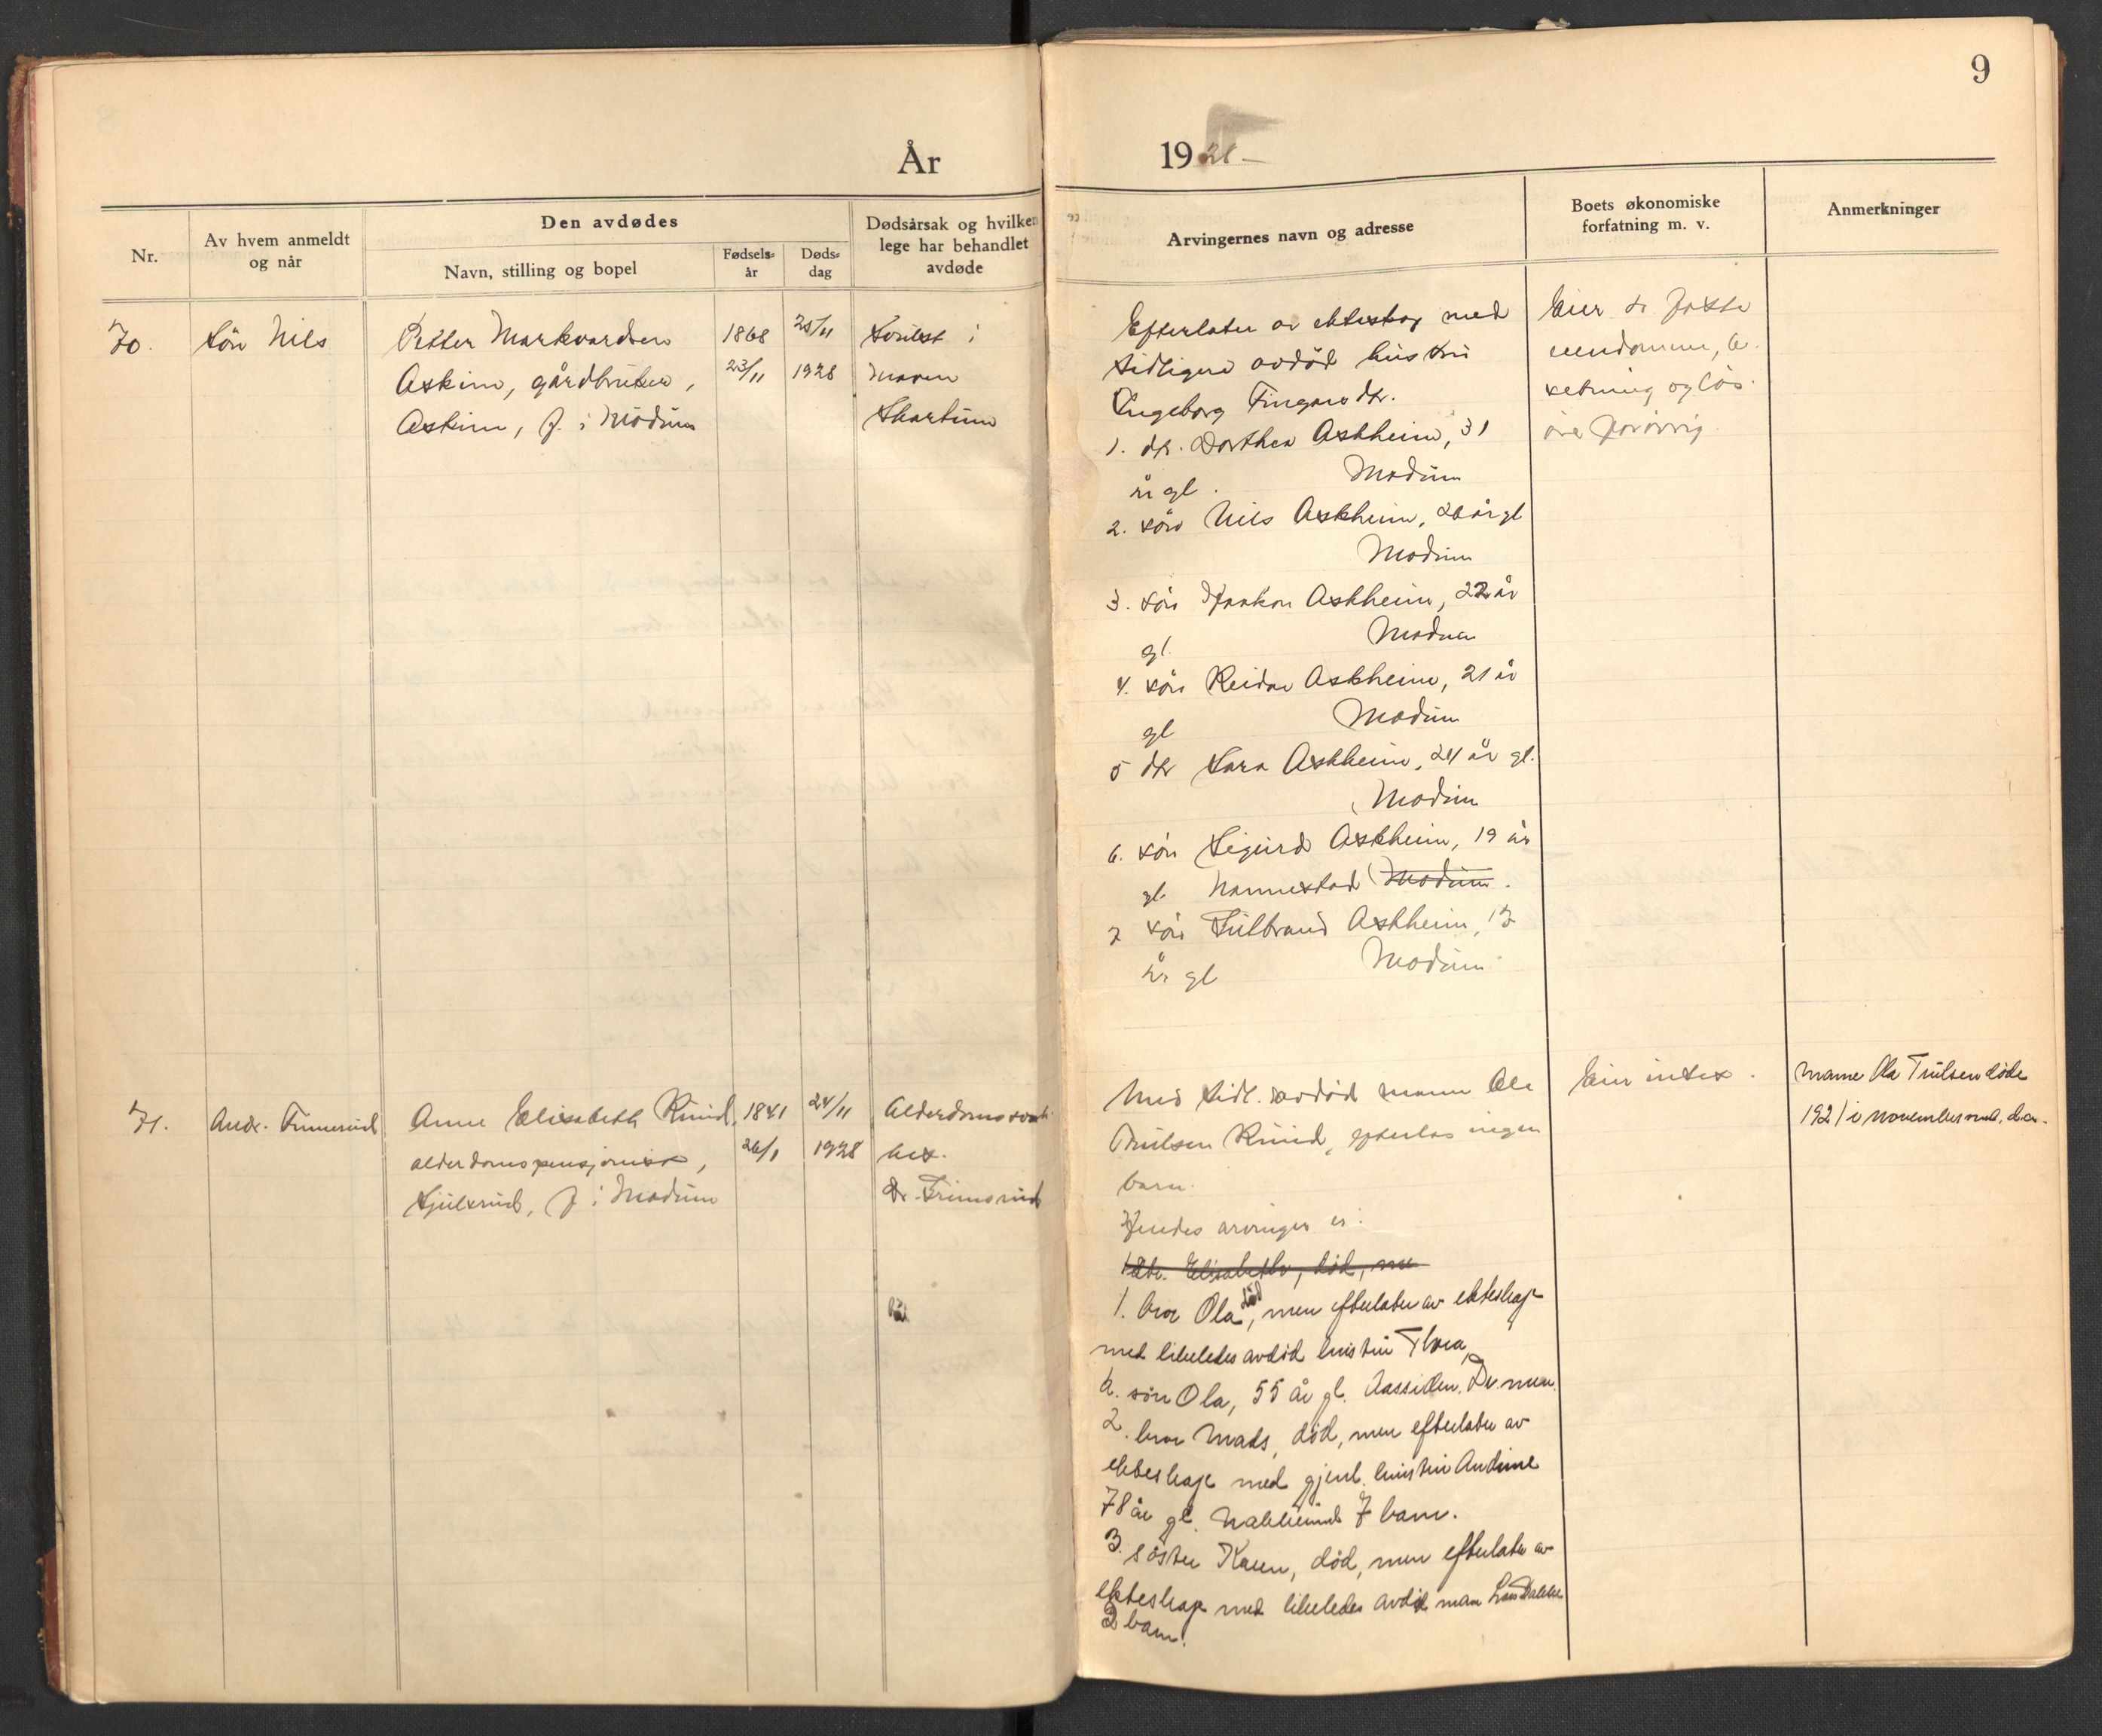 9
År 1928
Nr.
Av hvem anmeldt og når
Den avdødes
Navn, stilling og bopel
Fødsels-år
Døds-dag
Dødsårsak og hvilken lege har behandlet avdøde
Arvingernes navn og adresse
Boets økonomiske forfatning m. v.
Anmerkninger
70.
Sön Nils
Petter Markvardsen
Askim, gårdbruker,
Askim, f. i Modum
1868
23/11
25/11
1928
i
maven
Skartum
Efterlater av ekteskap med
tidligere avdöd hustru
Ingeborg
1. dtr. Dorthea Askheim, 31
år gl. Modum
2. sön Nils Askheim, 26 år gl
Modum
3. sön Haakon Askheim, 22 år
gl. Modum
4. sön Reidar Askheim, 21 år
gl Modum
5 dtr Sara Askheim, 24 år gl.
Modum
6. sön Sigurd Askheim, 19 år
gl. Nannestad Modum.
7 sön Gulbrand Askheim, 17
år gl Modum
Eier de faste
eiendomme, be-
setning og lös-
öre forövrig.
71.
Andr.
Anne Elisabeth Ruud,
alderdomspensjonist,
f. i Modum
1841
26/1
24/11
1928
Alderdomssvak-
het.
Dr.
Med tidl. avdöd mann Ole
Trulsen Ruud, efterlot ingen
barn.
Hendes arvinger er:
1 dtr. Elisabeth, död, men
1. bror Ola död, men efterlater av ekteskap
med likeledes avdöd hustru Thora,
a. sön Ola, 55 år gl. Aassiden, Drammen.
2. bror Mads, död, men efterlater av
ekteskap med gjenl. hustru Andrine
78 år gl. Nakkerud 7 barn.
3. söster Karen, död, men efterlater av
ekteskap med likeledes avdöd mann Lars
2 barn.
Eier intet.
Mannen Ola Trulsen döde
1921 i november mnd.